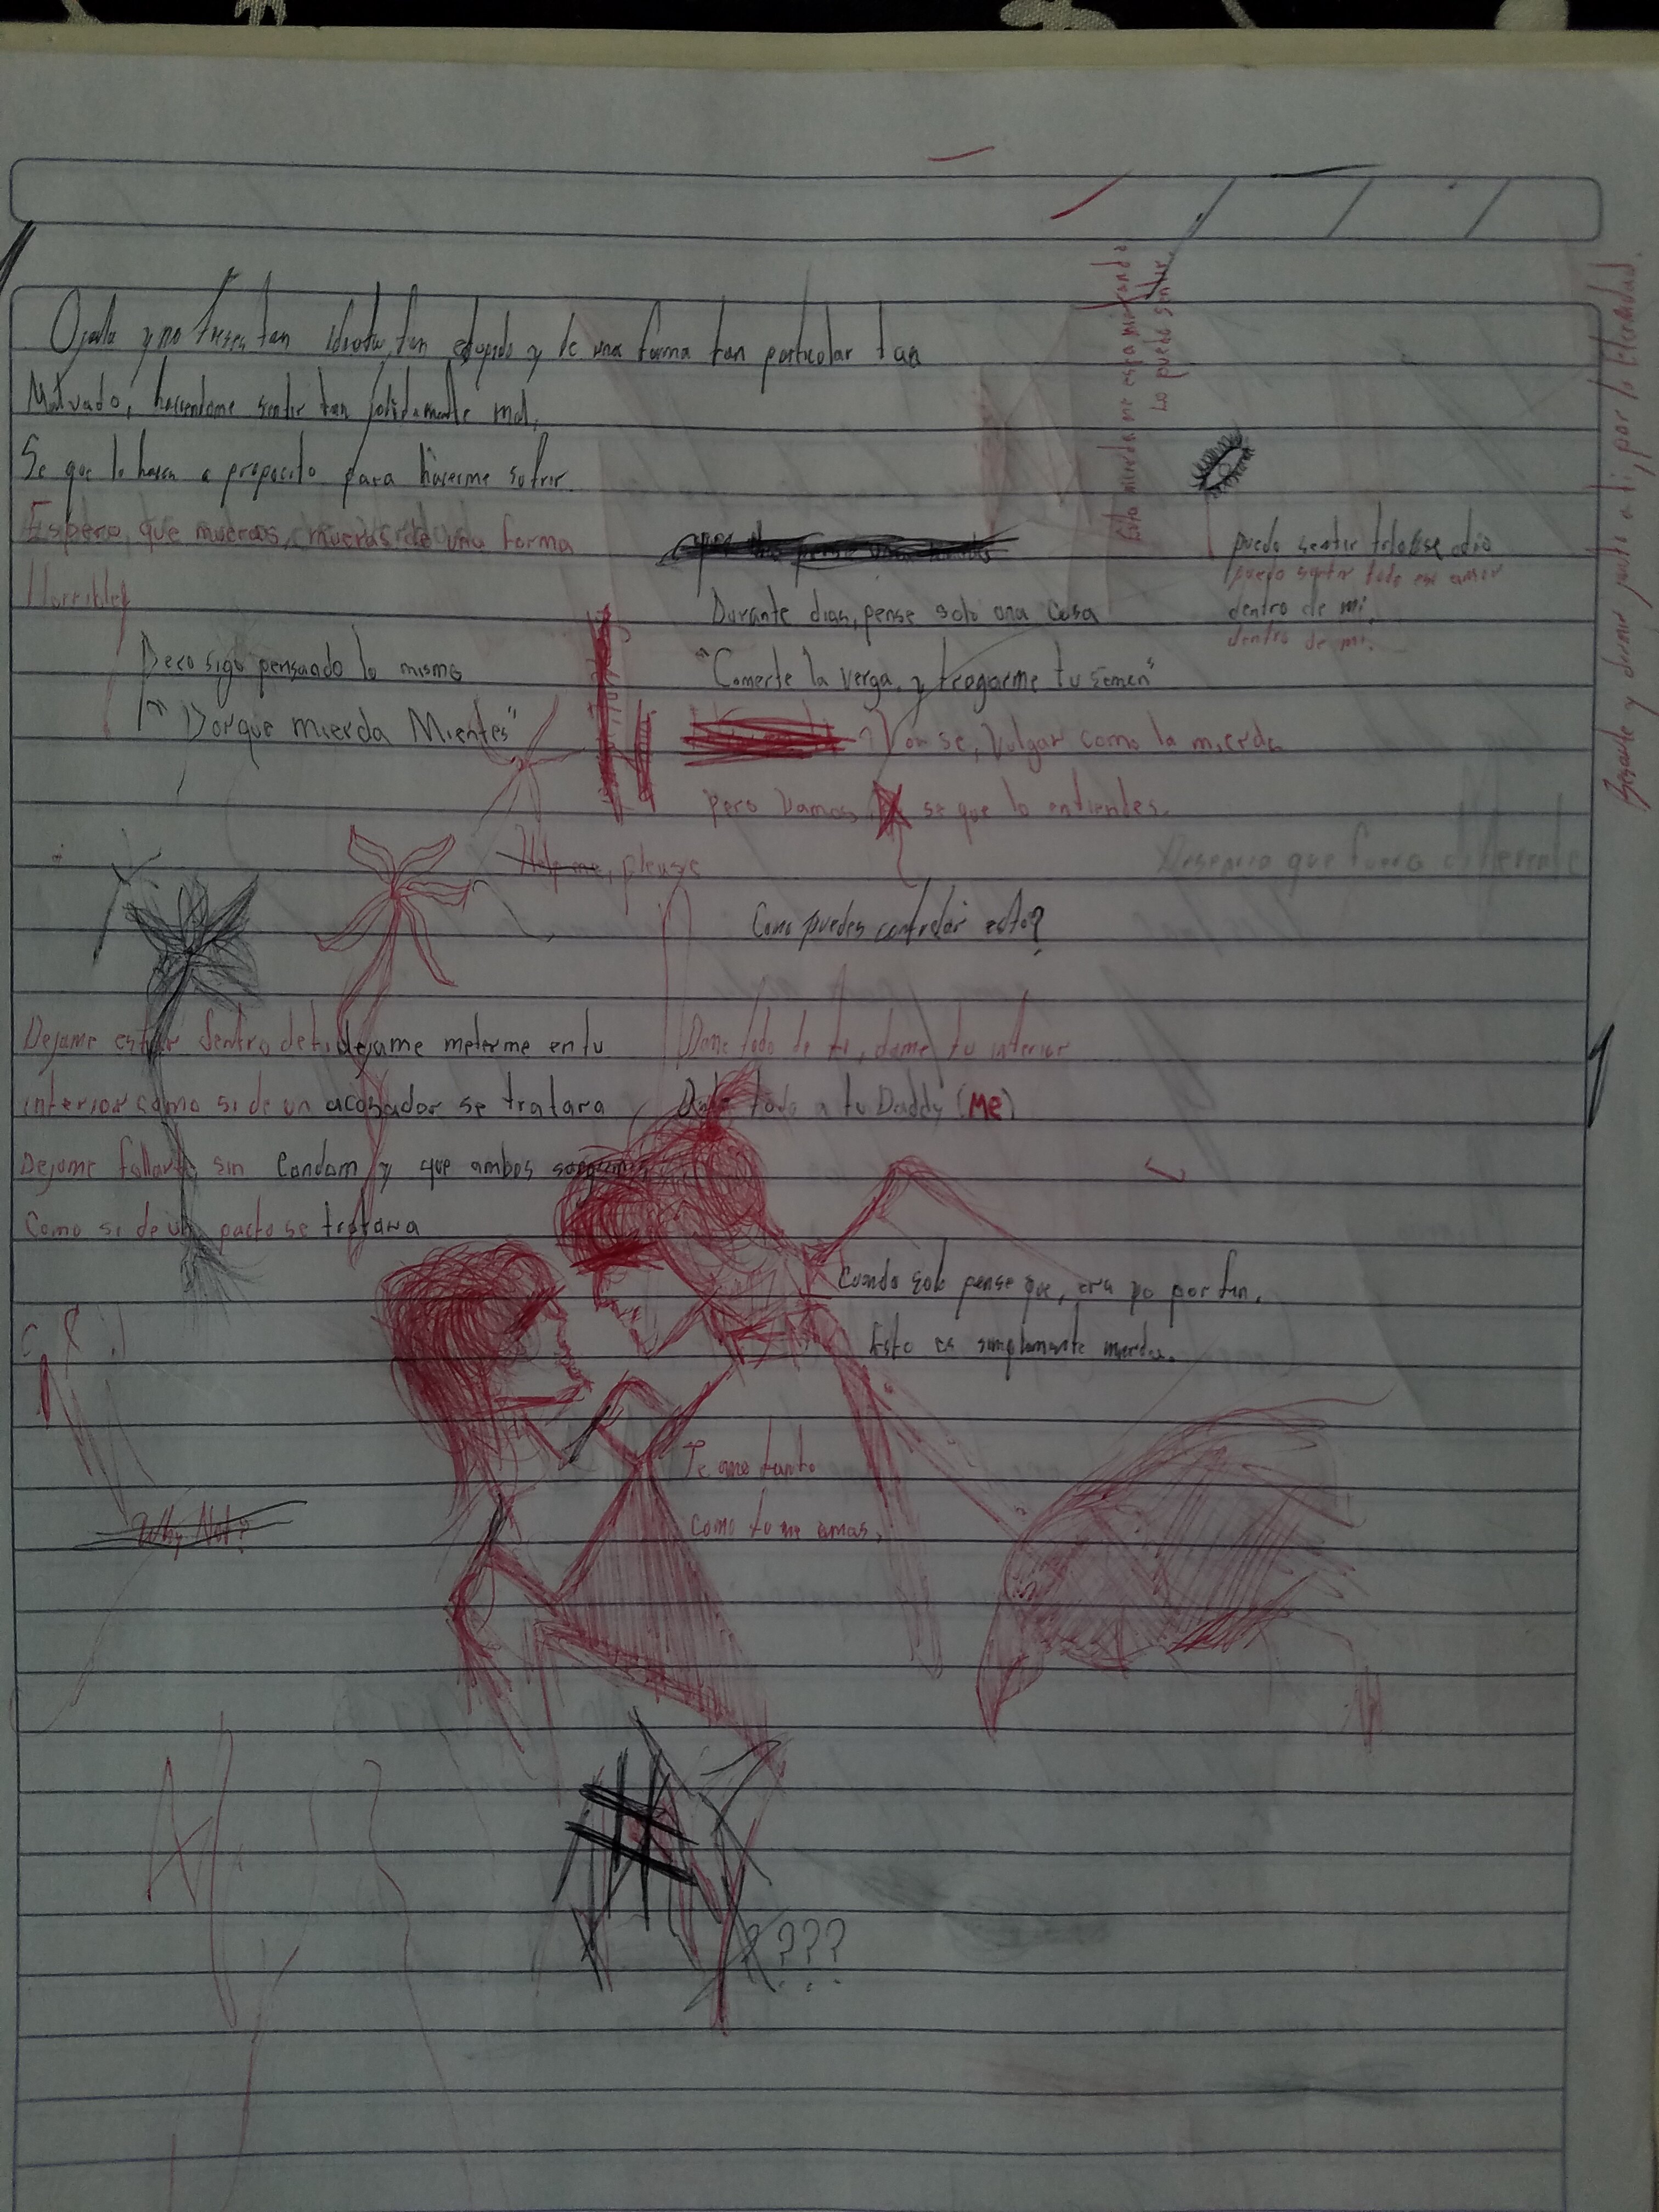 Ojala y no fueses tan idiota, tan estupido y de una forma tan particular tan
Malvado, haciendome sentir tan jodidamente mal,
Se que lo haces a proposito para hacerme sufrir.
Espero, que mueras, mueras de una forma
Horrible,
Pero sigo pensando lo mismo
"Porque mierda Mientes"
Help me, please
Durante dias, pense solo una cosa
"Comerte la verga, y tragarme tu semen"
se, Vulgar como la mierda
pero vamos, se que lo entiendes.
Esta mierda me esta matando
Lo puedo sentir
puedo sentir todo ese odio
puedo sentir todo ese amor
dentro de mi.
dentro de mi.
Besarte y dormir junto a ti, por la eternidad.
que fuera diferente
Como puedes controlar esto?
Dejame estar dentro de ti, dejame meterme en tu
interior como si de un acosador se tratara
Dejame follarte sin Condom y que ambos
Como si de un pacto se tratara
Dame todo de ti, dame tu interior
todo a tu Daddy (ME)
Cuando solo pense que, era yo por fin.
Esto es simplemente mierda.
Te amo tanto
como tu me amas.
Why Not?
????